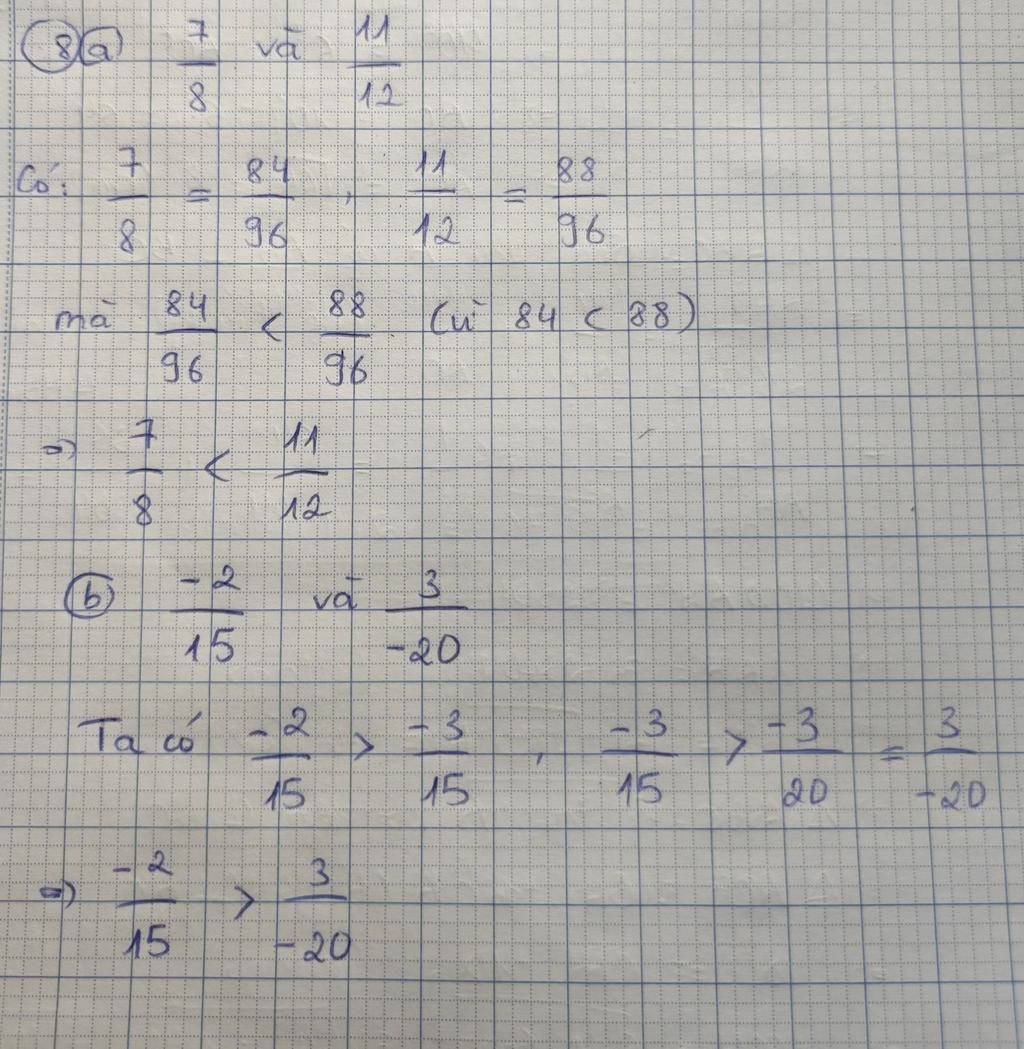 8 a) 7/8 và 11/12
Có: 7/8 = 84/96 , 11/12 = 88/96
mà 84/96 < 88/96 (vì 84 < 88)
=> 7/8 < 11/12
b) -2/15 và 3/-20
Ta có -2/15 > -3/15 , -3/15 > -3/20 = 3/-20
=> -2/15 > 3/-20